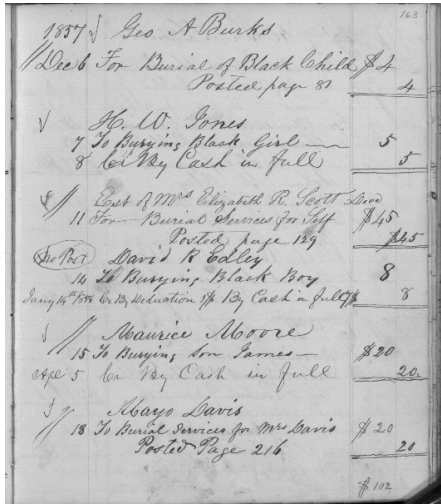 163
1857 Geo A Burks
Dec 6 For Burial of Black Child $4
Posted page 81 4
H. W. Jones
7 To Burying Black Girl 5
8 Cr By Cash in full 5
Est of Mrs Elizabeth R. Scott Decd
11 For Burial Services for Self $45
Posted page 129 $45
No Post David R Edley
14 To Burying Black Boy 8
Jany 14th 1858 Cr By Deduction By Cash in full 8
Maurice Moore
15 To Burying Son James $20
Apl 5 Cr By Cash in full 20
Mayo Davis
18 To Burial Services for Mrs Davis $20
Posted Page 216 20
$102